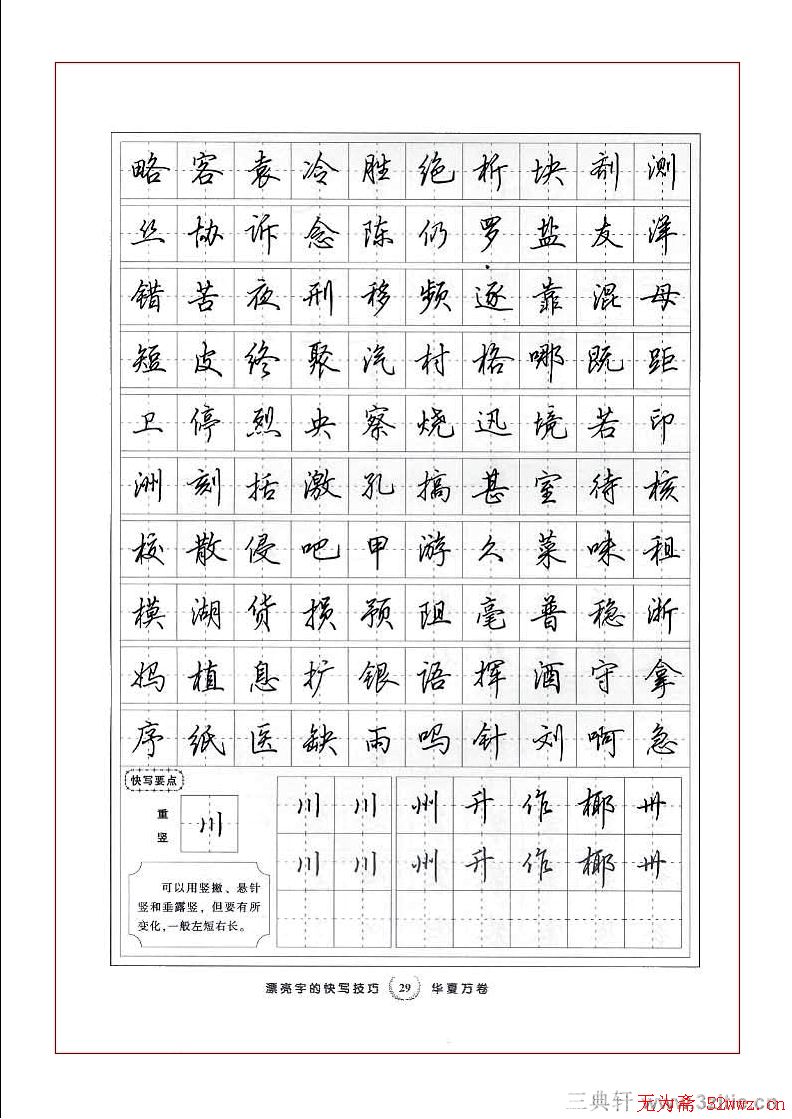 略客袁冷胜绝析块剂测
丝协诉念陈仍罗盐友洋
错苦夜刑移频逐靠混母
短皮终聚汽村格哪既距
卫停烈央察烧迅境若印
洲刻括激孔搞甚室待核
校散侵吧甲游久菜味租
模湖货损预阻毫普稳浙
妈植息扩银语挥酒守拿
序纸医缺雨吗针刘啊急
快写要点
重竖
川
川川州升作椰卅
川川州升作椰卅
可以用竖撇、悬针
竖和垂露竖，但要有所
变化，一般左短右长。
漂亮字的快写技巧 29 华夏万卷
三典轩
无为斋 52wwz.cn